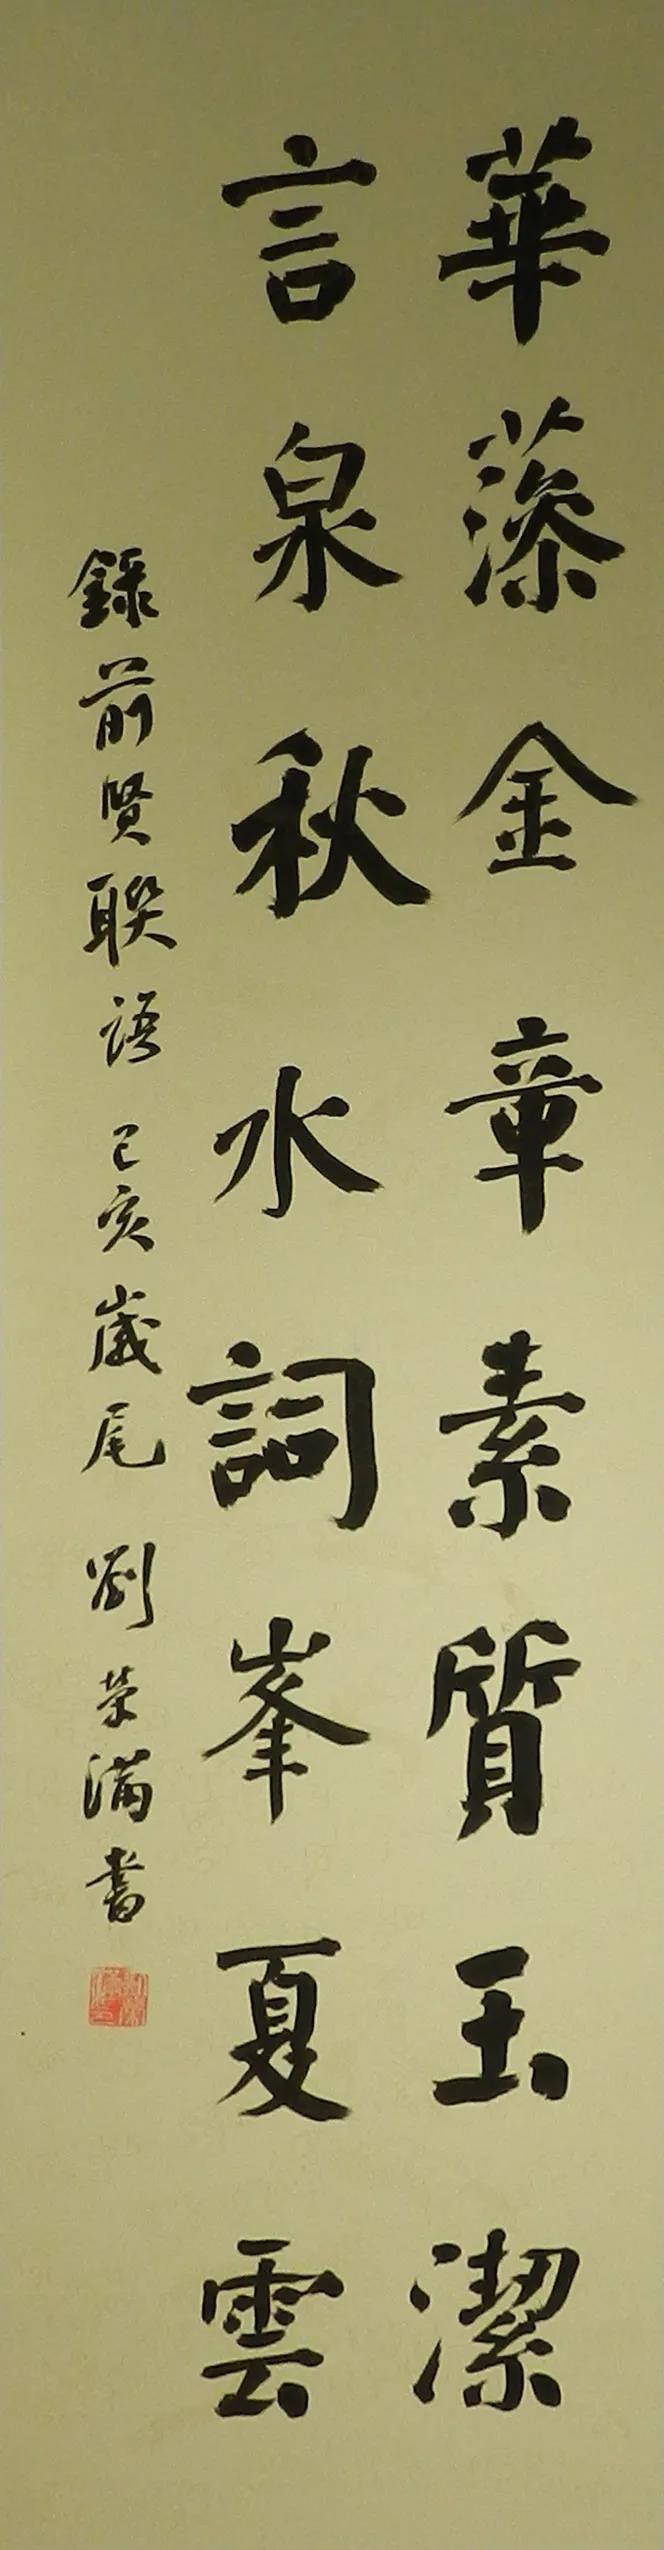 華藻金章素質玉潔
言泉秋水詞峯夏雲
錄前賢聯語己亥歲尾劉荣滿書